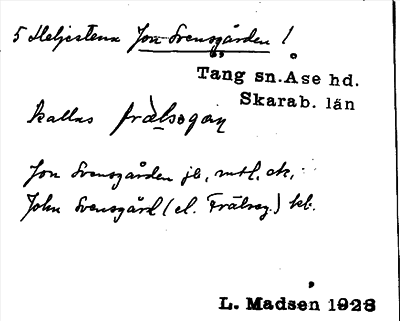 5 Heljestena Jon-Svensgården !
Tang sn. Åse hd.
Skarab. län
kallas frälsegån
Jon Svensgården jb, mtl, ek,
John Svensgård (el. Frälseg.) kb.
L. Madsen 1928